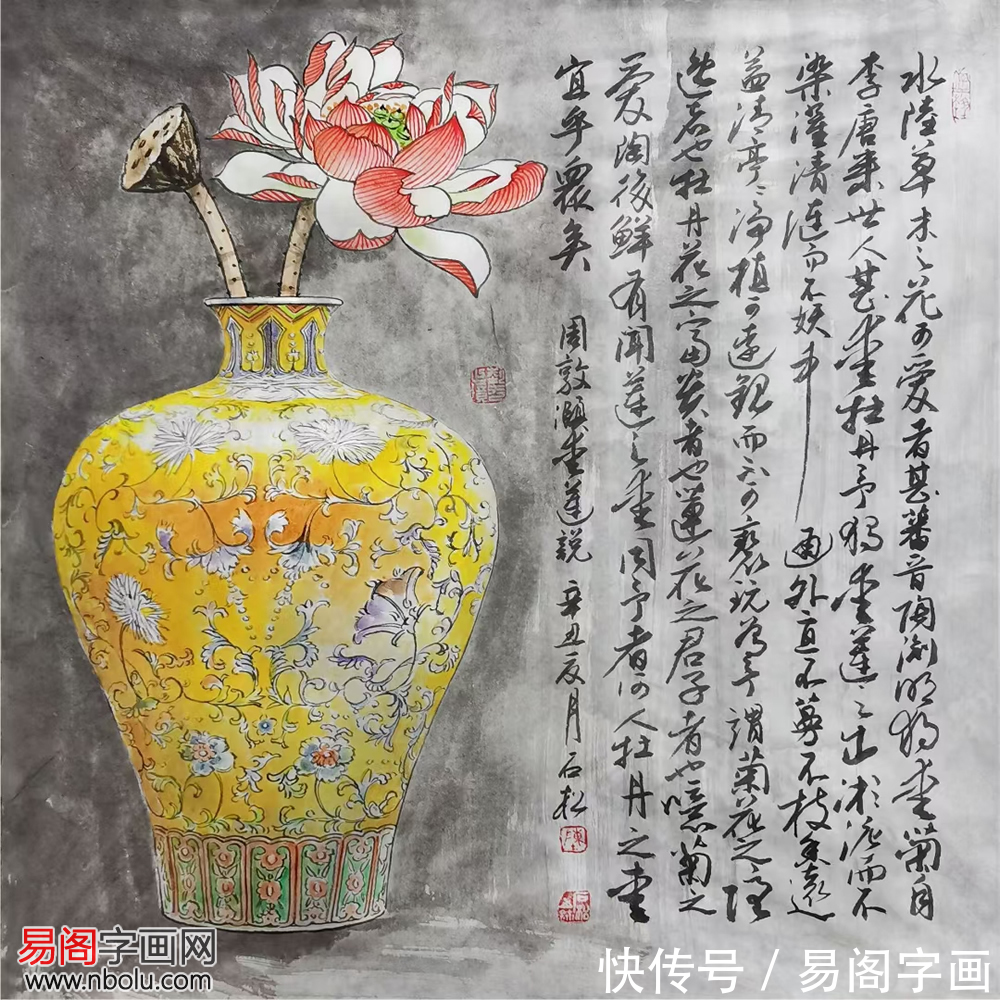 水陸草木之花可爱者甚蕃晉陶渊明独爱菊自
李唐来世人甚爱牡丹予独爱蓮之出淤泥而不
染濯清漣而不妖中通外直不蔓不枝香遠
益清亭〻净植可遠觀而不可褻玩焉予謂菊花之隐
逸者也牡丹花之富贵者也蓮花之君子者也噫菊之
爱陶後鮮有聞蓮之爱同予者何人牡丹之爱
宜乎衆矣 周敦颐爱蓮説 辛丑夏月石松
易阁字画网
www.nbolu.com
快传号 / 易阁字画